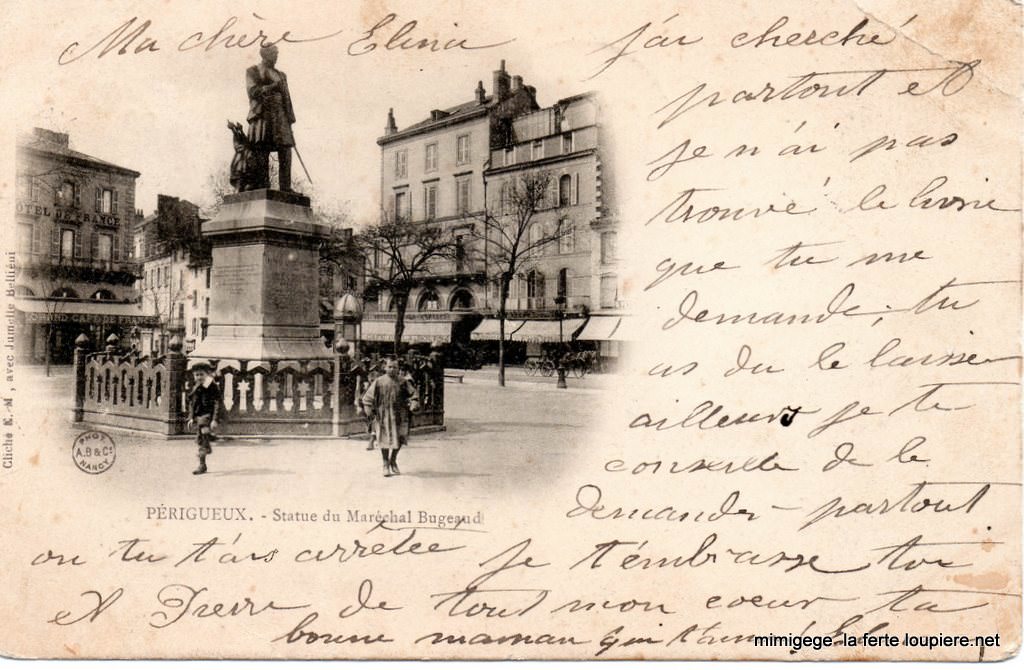 Ma chère Elina j'ai cherché
partout et
je n'ai pas
trouvé le livre
que tu me
demande, tu
as du le laisser
ailleurs je te
conseille de le
demander partout
ou tu t'ais arrêtée je t'embrasse toi
et Pierre de tout mon coeur ta
bonne maman qui t'aime!
HÔTEL DE FRANCE
Cliché K.-M, avec Jumelle Belliéni
PHOT
A.B & Cie
NANCY
PÉRIGUEUX. - Statue du Maréchal Bugeaud
mimigege-la ferte loupiere.net